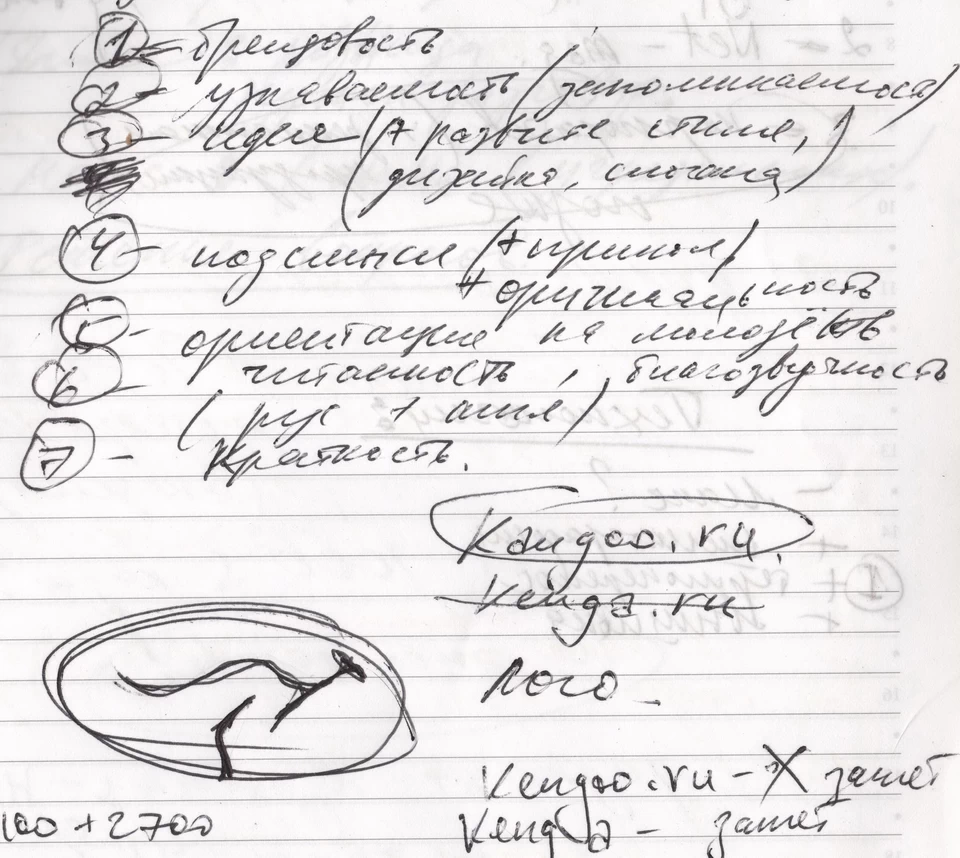 1 - брендовость
2 - узнаваемость (запоминаемость)
3 - идея (+ развитие стиля,
дизайна, слогана)
4 - подсмысл (+ прикол)
+ оригинальность
5 - ориентация на молодёжь
6 - читаемость, благозвучность
(рус + англ)
7 - Краткость.
Kangoo.ru.
Кенga.ru
Лого
Kengoo.ru - X занет
Кенgа - занет
100 + 2700